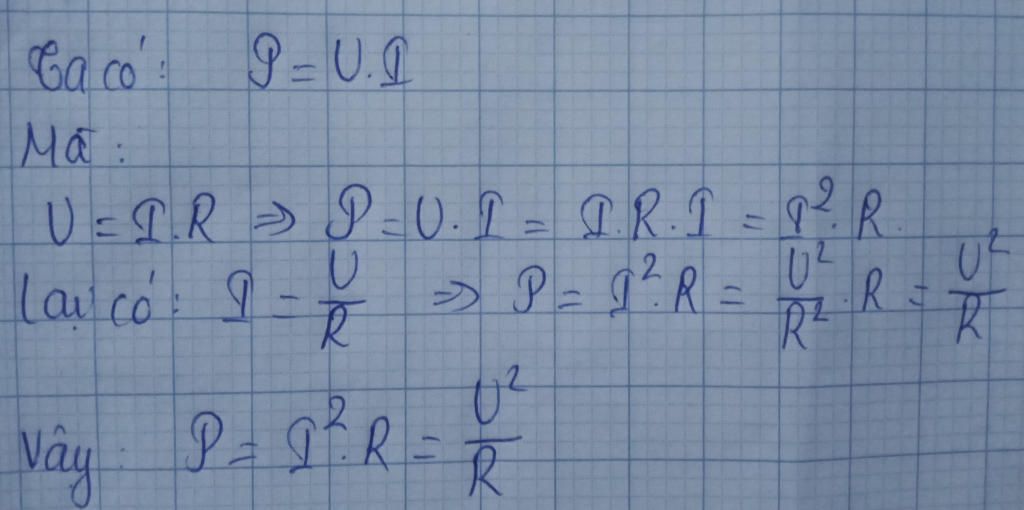 Ta có: P = U.I
Mà:
U = I.R ⇒ P = U.I = I.R.I = I².R.
Lại có: I = U/R ⇒ P = I².R = U²/R².R = U²/R
Vậy: P = I².R = U²/R